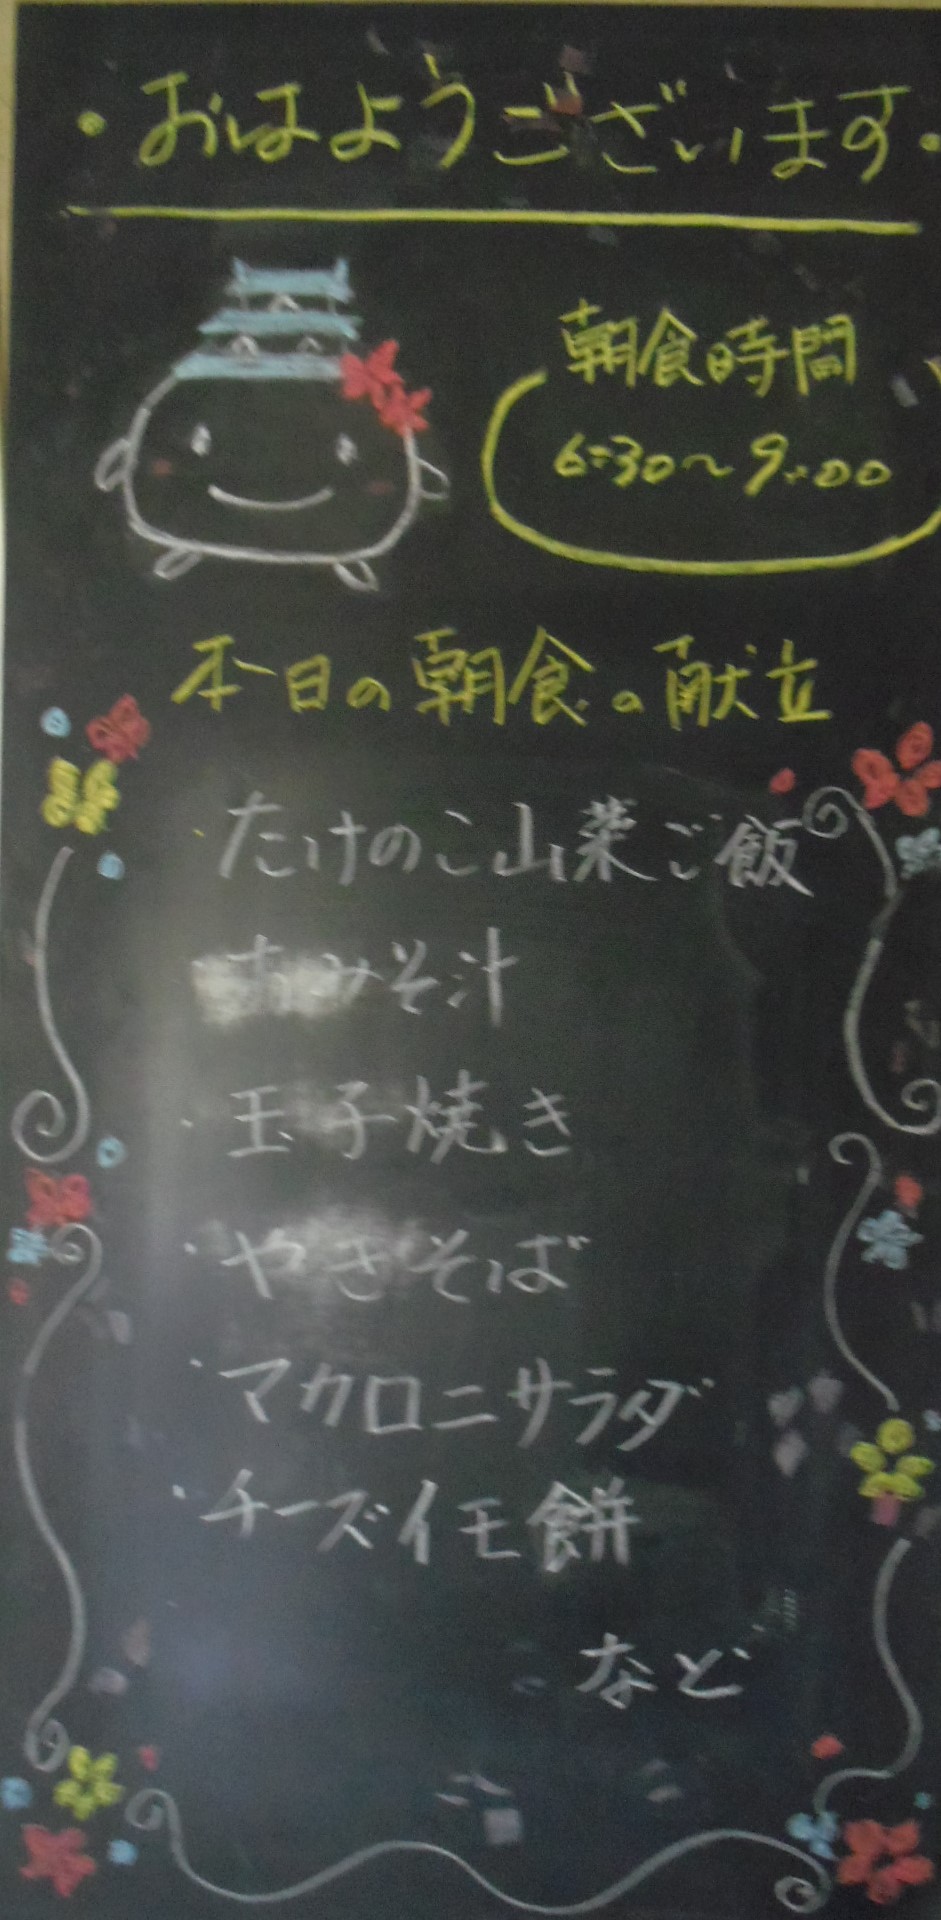 ・おはようございます・
朝食時間
6:30〜9:00
本日の朝食の献立
・たけのこ山菜ご飯
みそ汁
・玉子焼き
・やきそば
・マカロニサラダ
・チーズイモ餅
など